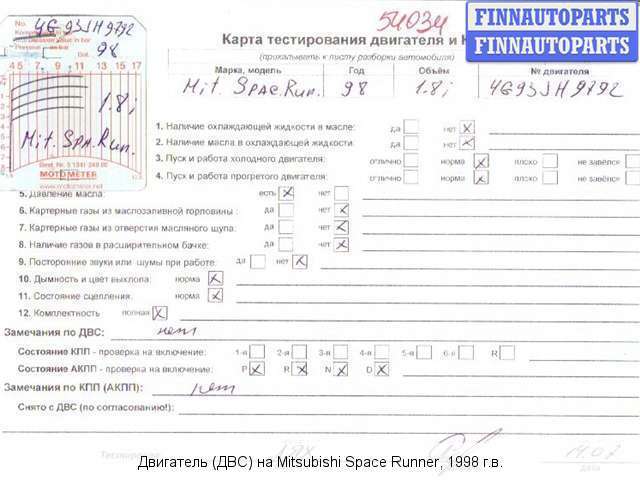 No. 4G93JH9792
98
4 5 7 9 11 13 15 17
1.8i
Mit. Spa. Run.
MOTOMETER
www.motometer.net
54034
FINNAUTOPARTS
FINNAUTOPARTS
Карта тестирования двигателя и К
(прикалывать к листу разборки автомобиля)
Марка, модель Год Объём № двигателя
Mit. Spac. Run. 98 1.8i 4G93JH9792
1. Наличие охлаждающей жидкости в масле: да нет X
2. Наличие масла в охлаждающей жидкости: да нет X
3. Пуск и работа холодного двигателя: отлично норма X плохо не завёлся
4. Пуск и работа прогретого двигателя: отлично норма X плохо не завёлся
5. Давление масла: есть X нет
6. Картерные газы из маслозаливной горловины : да нет X
7. Картерные газы из отверстия масляного щупа: да нет X
8. Наличие газов в расширительном бачке: да нет X
9. Посторонние звуки или шумы при работе: да нет X
10. Дымность и цвет выхлопа: норма X
11. Состояние сцепления. норма X
12. Комплектность полная X
Замечания по ДВС: нет
Состояние КПП - проверка на включение: 1-я 2-я 3-я 4-я 5-я 6-я R
Состояние АКПП - проверка на включение: P X R X N X D X
Замечания по КПП (АКПП): нет
Снято с ДВС (по согласованию!):
14.02
дата
Двигатель (ДВС) на Mitsubishi Space Runner, 1998 г.в.